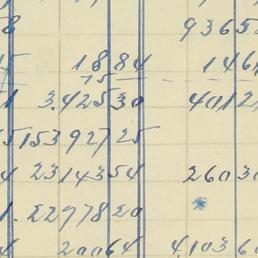 8 9365
5 18 84 146
75
1 3.425 30 4012
5 153927 25
4 23143 54 26030
1. 22978 20
4 20064 4,10360